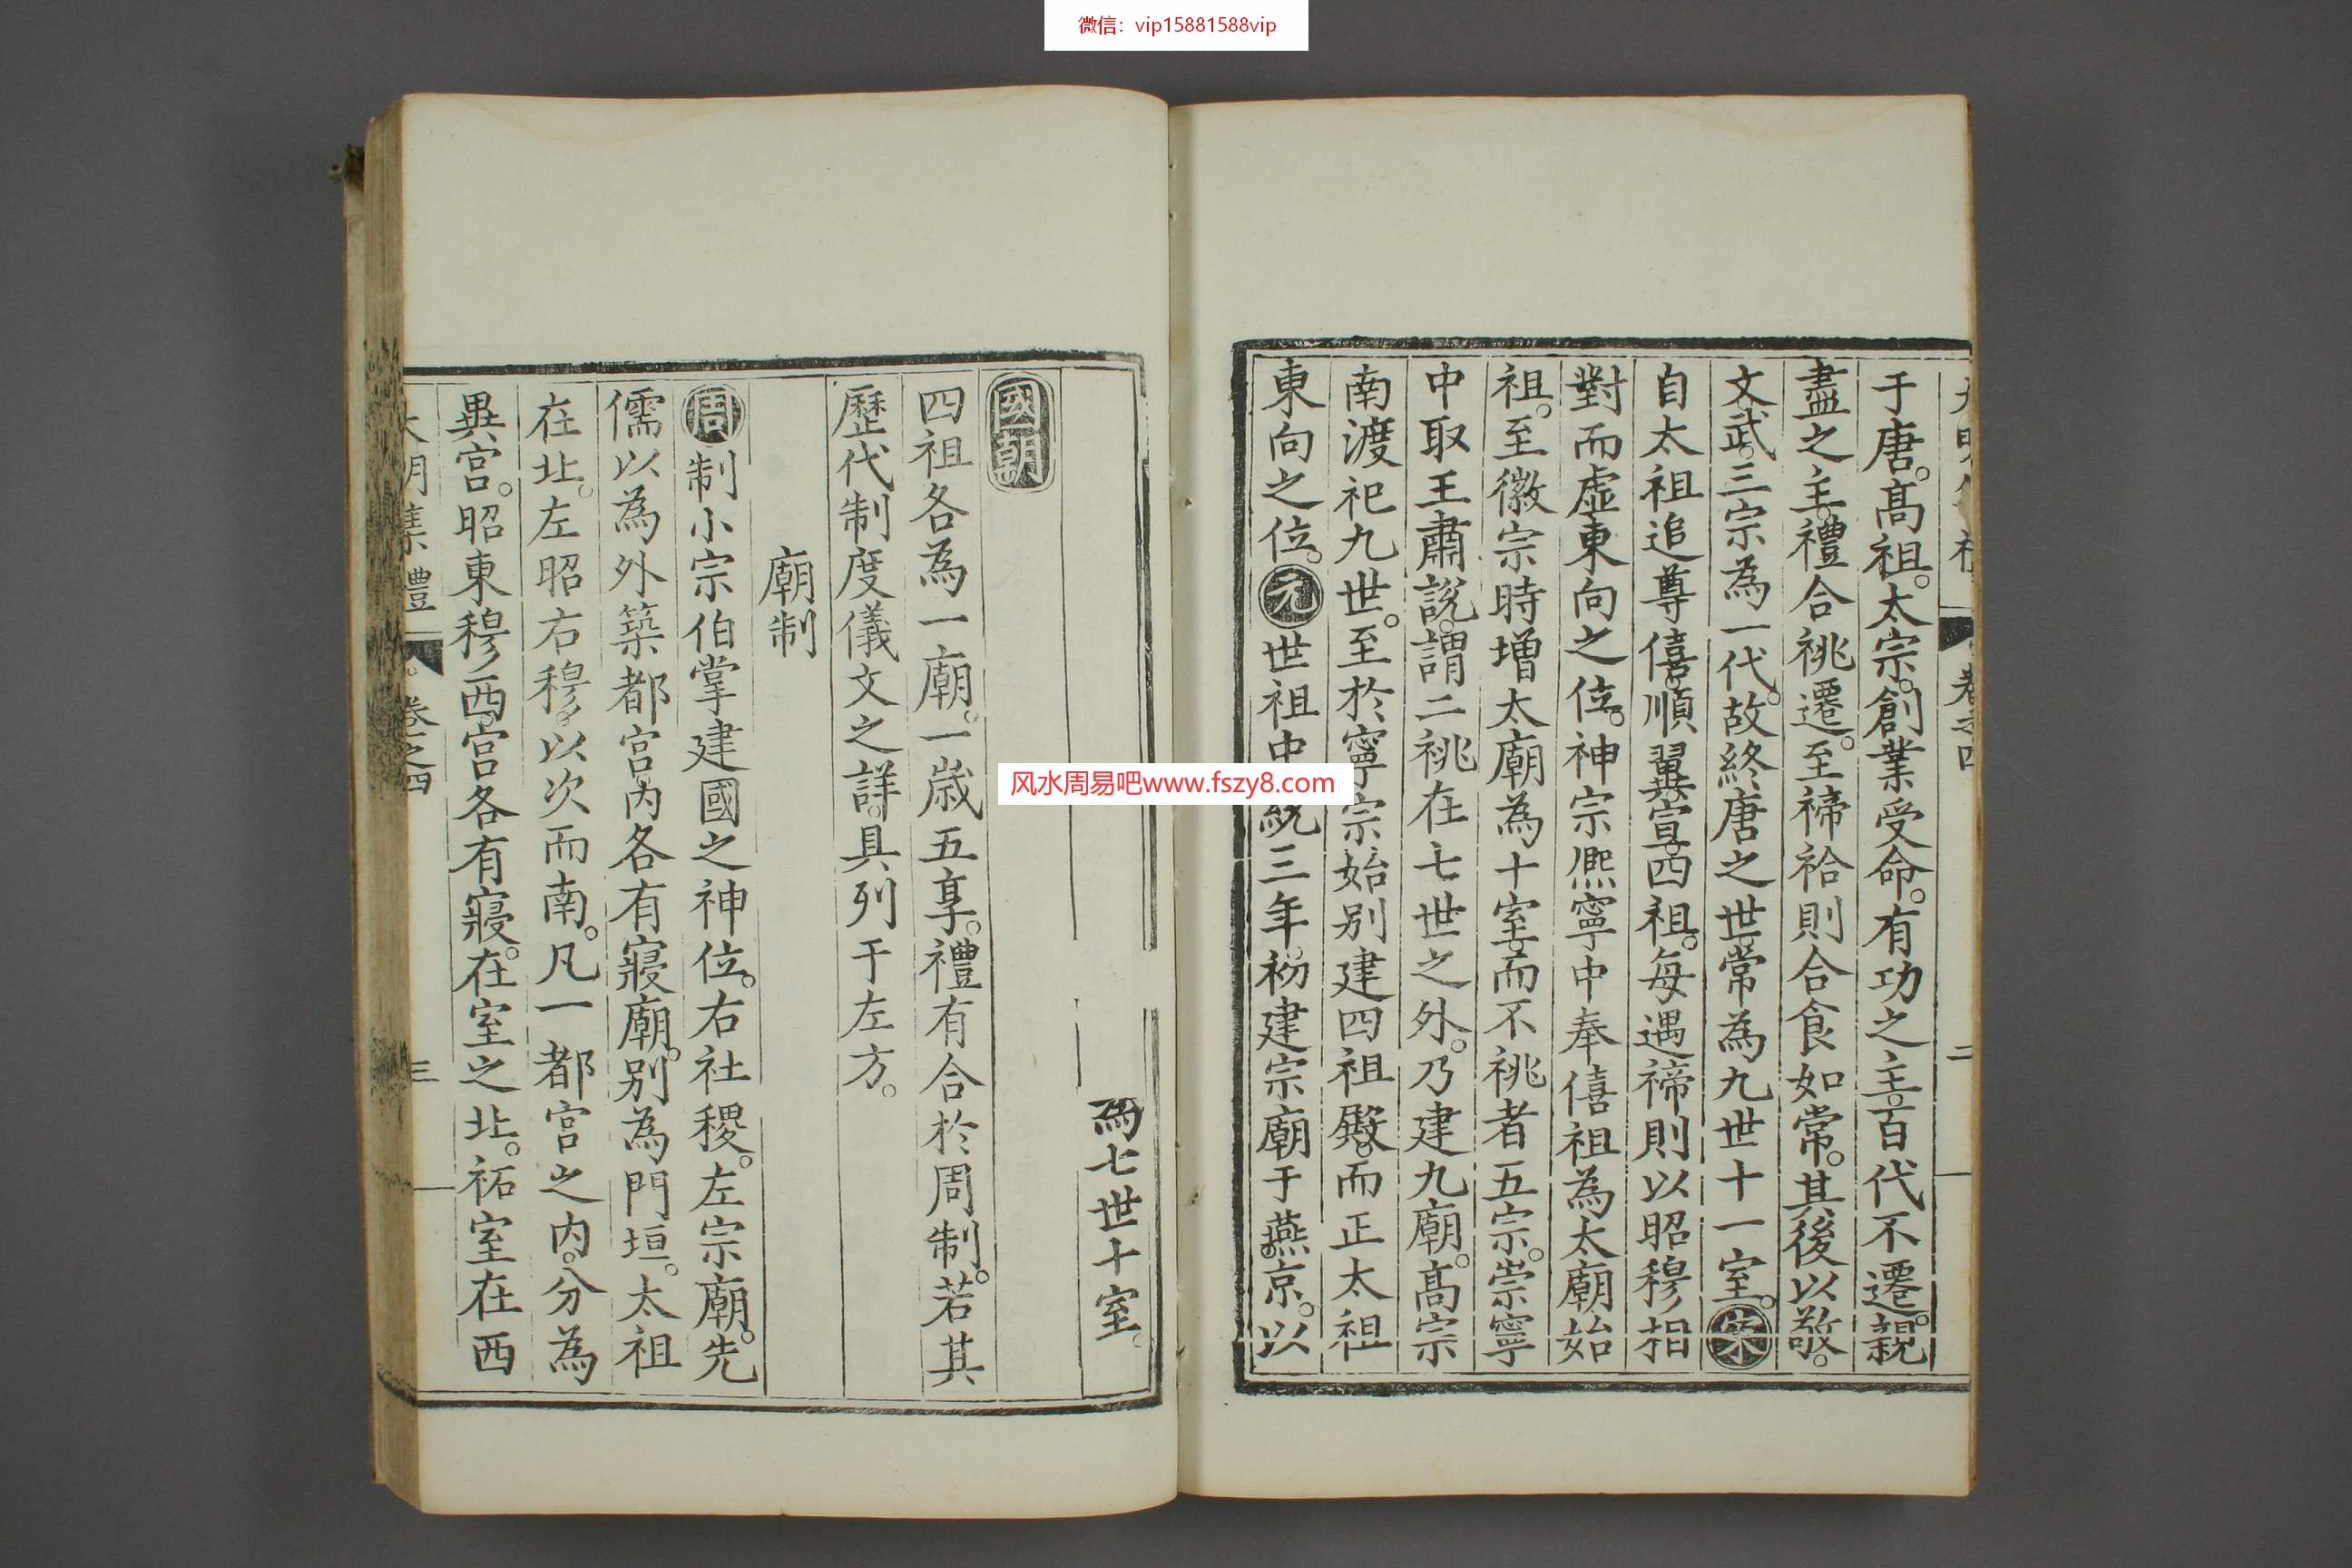 微信：vip15881588vip
于唐。高祖。太宗。創業受命。有功之主。百代不遷。親
盡之主。禮合祧遷。至禘祫則合食如常。其後以敬。
文。武。三宗為一代。故終唐之世。常為九世十一室。宋
自太祖追尊僖。順。翼。宣。四祖。每遇禘則以昭穆相
對而虛東向之位。神宗熙寧中奉僖祖為太廟始
祖。至徽宗時增太廟為十室。而不祧者五宗。崇寧
中取王肅說。謂二祧在七世之外。乃建九廟。高宗
南渡祀九世。至於寧宗始别建四祖殿。而正太祖
東向之位。元世祖中統三年。初建宗廟于燕京。以
七世十室。
國朝
四祖各為一廟。一歲五享。禮有合於周制。若其
歷代制度儀文之詳。具列于左方。
廟制
周制小宗伯掌建國之神位。右社稷。左宗廟。先
儒以為外築都宮。内各有寢廟。别為門垣。太祖
在北。左昭右穆。以次而南。凡一都宮之内。分為
異宮。昭東穆西。宮各有寢。在室之北。祏室在西
大明集禮 卷之四 三
风水周易吧www.fszy8.com